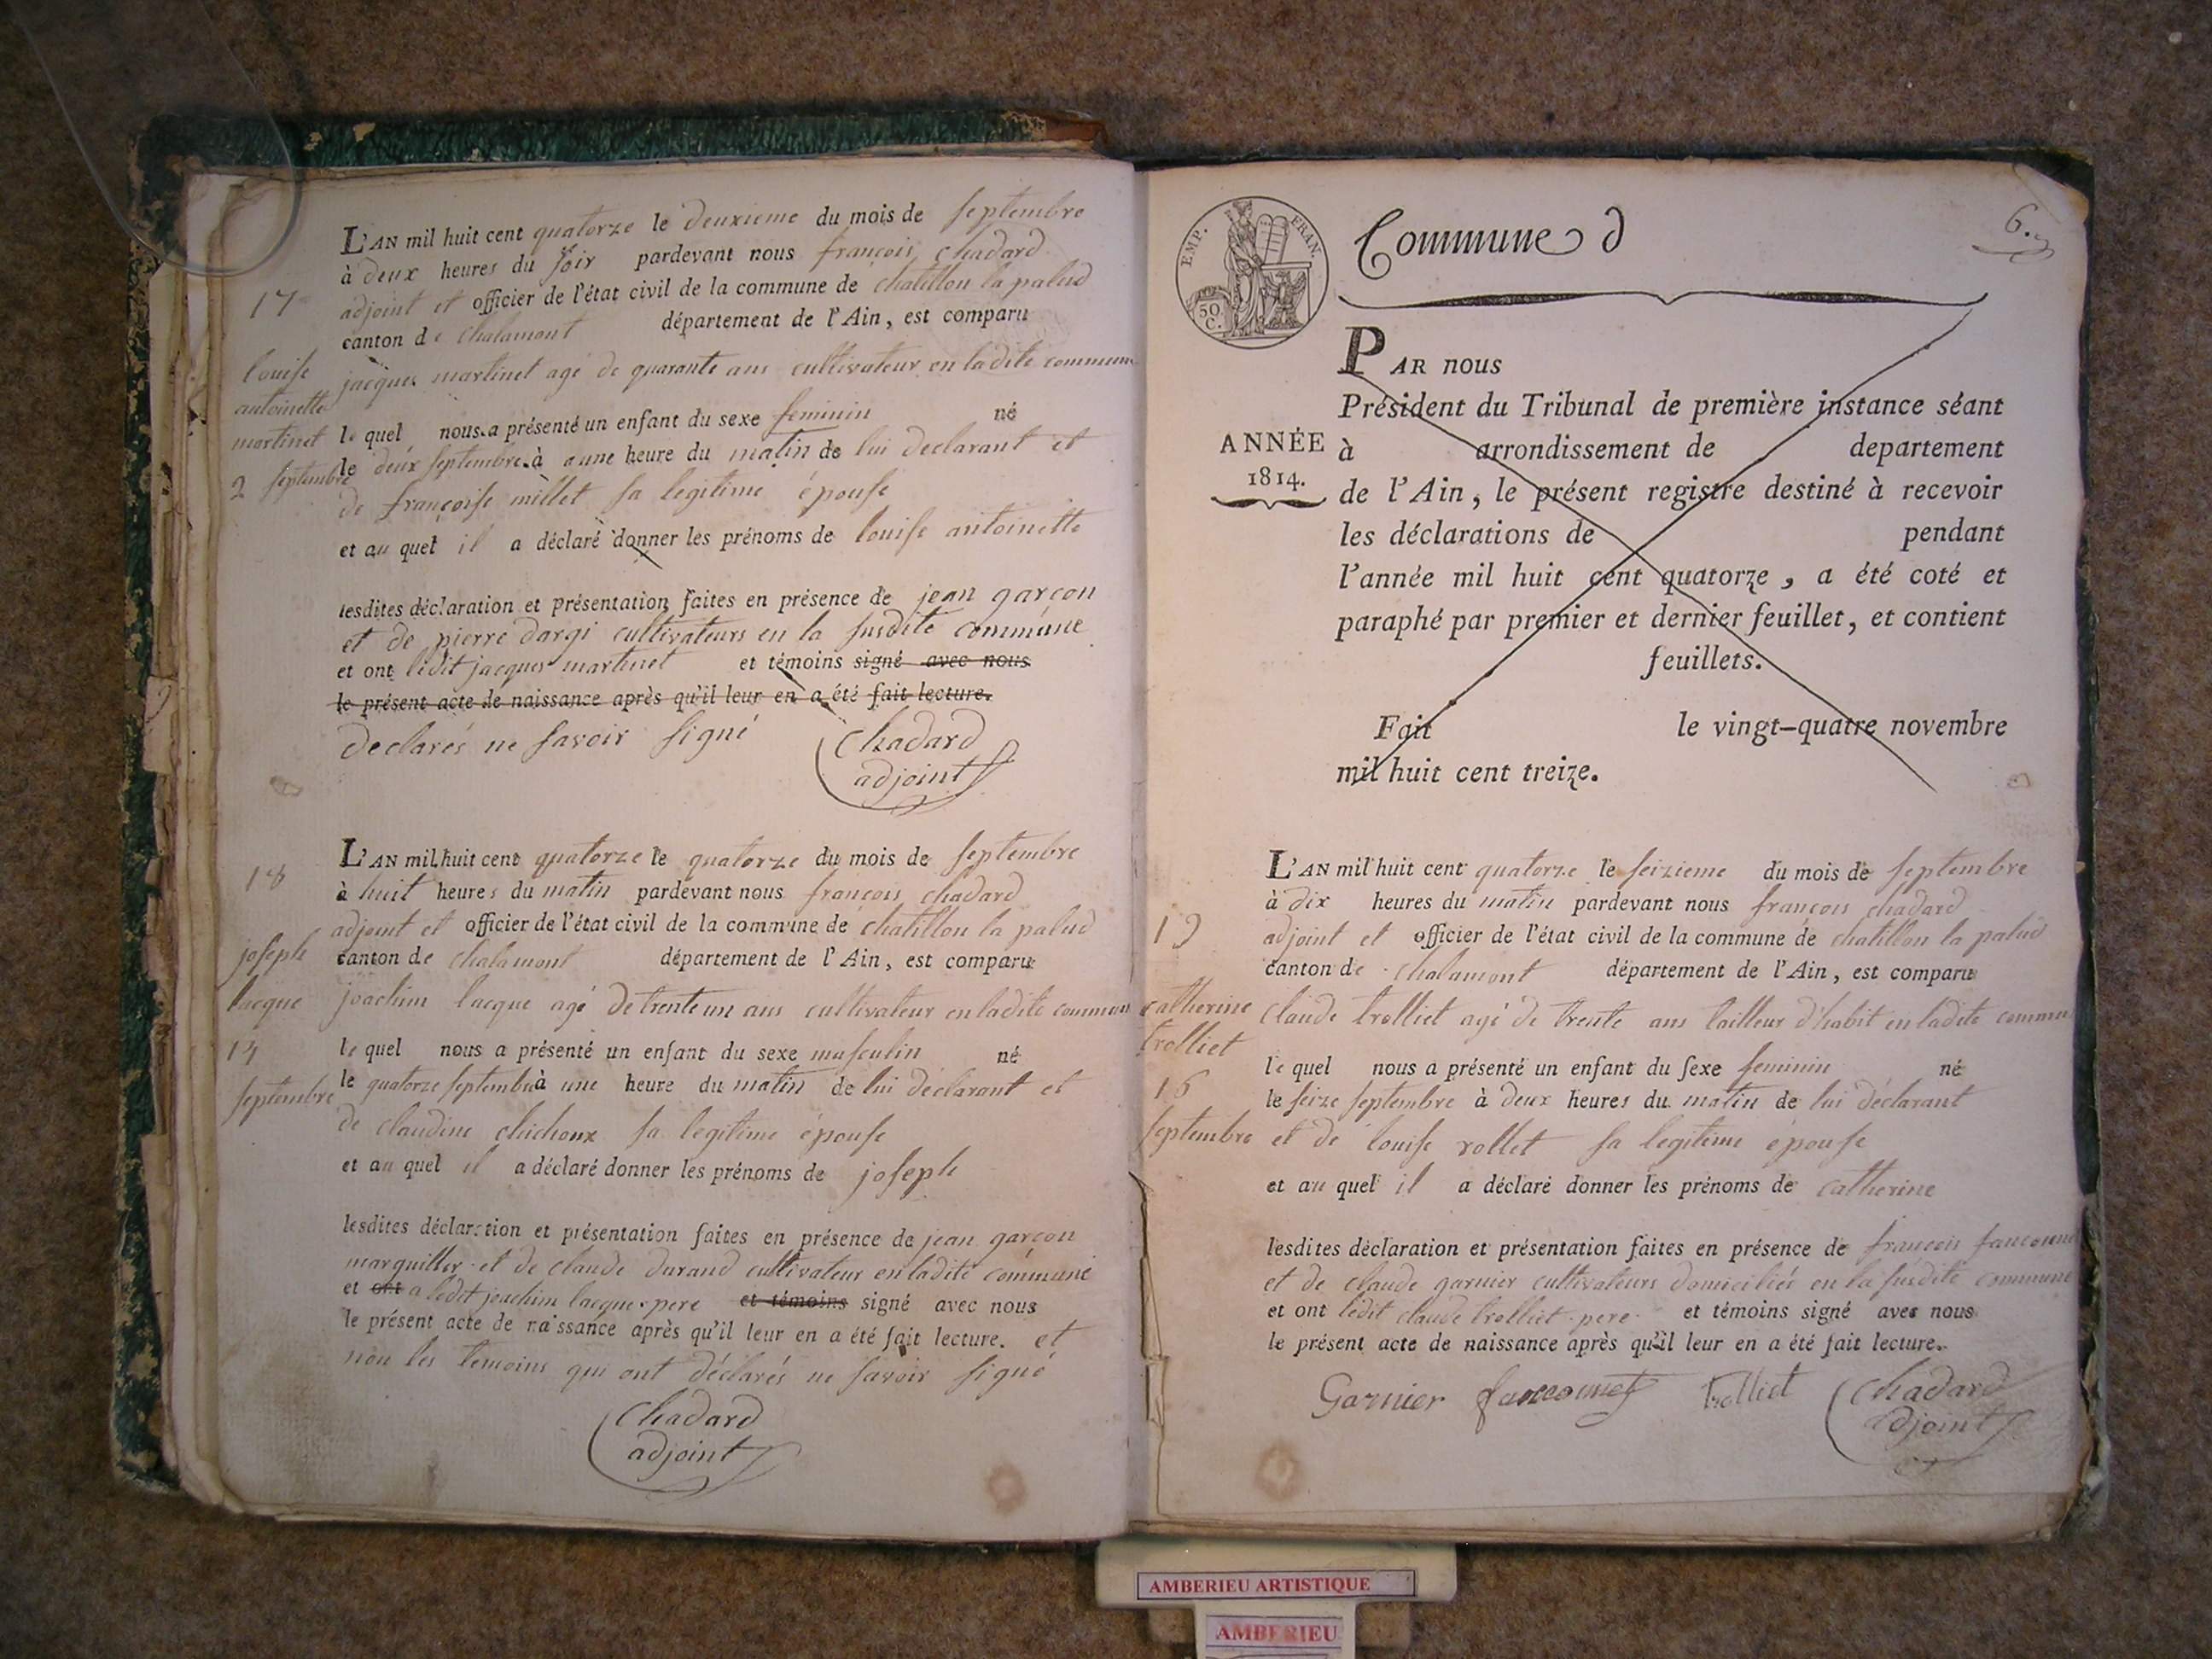 L'AN mil huit cent quatorze le deuxieme du mois de septembre
à deux heures du soir pardevant nous françois chadard
adjoint et officier de l'état civil de la commune de chatillon la palud
canton de chalamont département de l'Ain, est comparu
jacques martinet agé de quarante ans cultivateur en ladite commune
le quel nous a présenté un enfant du sexe feminin né
le deux septembre à une heure du matin de lui declarant et
de françoise millet sa legitime épouse
et au quel il a déclaré donner les prénoms de louise antoinette
lesdites déclaration et présentation faites en présence de jean garçon
et de pierre dargi cultivateurs en la susdite commune
et ont ledit jacques martinet et témoins signé avec nous
le présent acte de naissance après qu'il leur en a été fait lecture.
declarés ne savoir signé
chadard
adjoint
17
louise
antoinette
martinet
2 septembre
L'AN mil huit cent quatorze le quatorze du mois de septembre
à huit heures du matin pardevant nous françois chadard
adjoint et officier de l'état civil de la commune de chatillon la palud
canton de chalamont département de l'Ain, est comparu
joachim lacque agé de trente un ans cultivateur en ladite commun
le quel nous a présenté un enfant du sexe masculin né
le quatorze septembre à une heure du matin de lui déclarant et
de claudine chichoux sa legitime épouse
et au quel il a déclaré donner les prénoms de joseph
lesdites déclaration et présentation faites en présence de jean garçon
marguiller et de claude durand cultivateur en ladite commune
et ont a ledit joachim lacque pere et témoins signé avec nous
le présent acte de naissance après qu'il leur en a été fait lecture. et
non les temoins qui ont déclarés ne savoir signé
chadard
adjoint
18
joseph
lacque
14
septembre
EMP. FRAN.
50
C.
Commune d
6.
PAR nous
Président du Tribunal de première instance séant
à arrondissement de departement
de l'Ain, le présent registre destiné à recevoir
les déclarations de pendant
l'année mil huit cent quatorze, a été coté et
paraphé par premier et dernier feuillet, et contient
feuillets.
Fait le vingt-quatre novembre
mil huit cent treize.
ANNÉE
1814.
L'AN mil huit cent quatorze le seizieme du mois de septembre
à dix heures du matin pardevant nous françois chadard
adjoint et officier de l'état civil de la commune de chatillon la palud
canton de chalamont département de l'Ain, est comparu
claude trolliet agé de trente ans tailleur d'habit en ladite commu
le quel nous a présenté un enfant du sexe feminin né
le seize septembre à deux heures du matin de lui déclarant
et de louise rollet sa legitime épouse
et au quel il a déclaré donner les prénoms de catherine
lesdites déclaration et présentation faites en présence de françois
et de claude garnier cultivateurs domiciliés en la susdite commune
et ont ledit claude trolliet pere et témoins signé avec nous
le présent acte de naissance après qu'il leur en a été fait lecture.
Garnier Trolliet chadard
adjoint
19
catherine
trolliet
16
septembre
AMBERIEU ARTISTIQUE
AMBERIEU